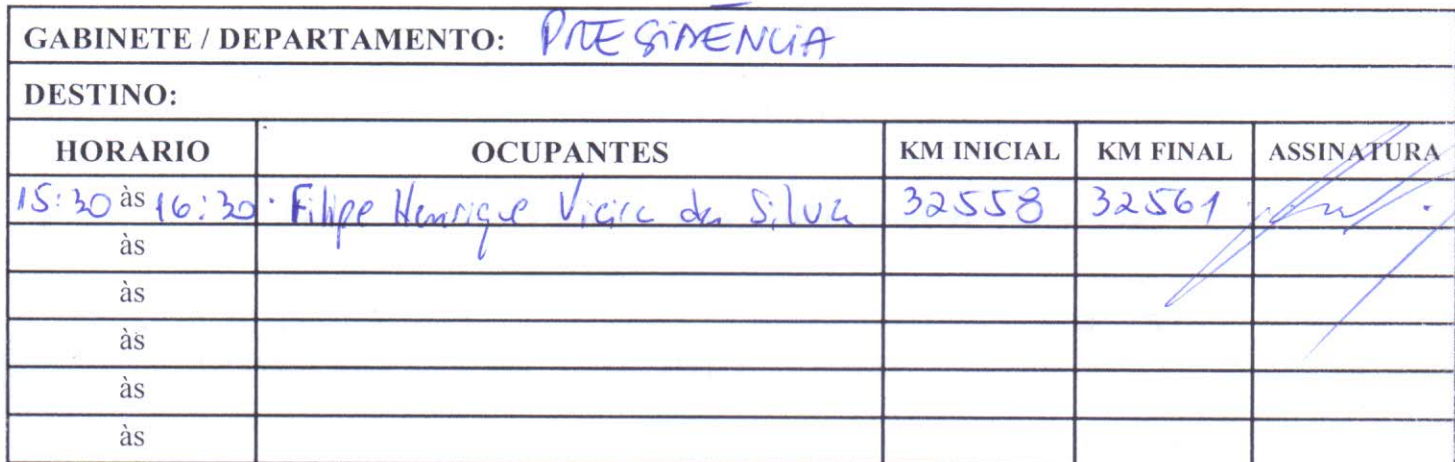 GABINETE / DEPARTAMENTO: PRESIDÊNCIA
DESTINO:
HORARIO OCUPANTES KM INICIAL KM FINAL ASSINATURA
15:30 às 16:30 Filipe Henrique Vieira da Silva 32558 32561
às
às
às
às
às